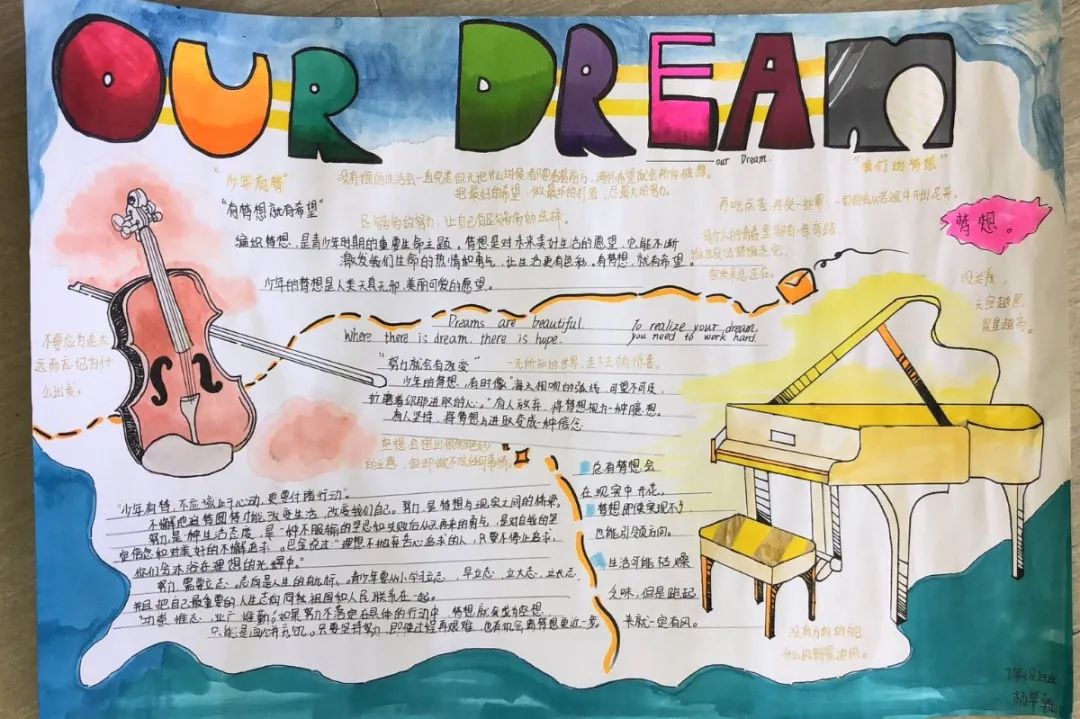 OUR DREAM
our Dream.
"少年有梦"
没有
"我们的梦想"
"有梦想就有希望"
把最好的希望，做最坏的打算，尽最大的努力。
足够的努力，让自己有足够的选择。
梦想。
编织梦想，是青少年时期的重要生命主题，梦想是对未来美好生活的愿望，它能不断
激发我们生命的热情和勇气，让生活更有色彩。有梦想，就有希望。
少年的梦想是人类天真无邪、美丽可爱的愿望。
没关系，
天空越黑，
星星越亮。
Dreams are beautiful.
Where there is dream, there is hope.
To realize your dream,
you need to work hard.
不要因为走太
远而忘记为什
么出发。
"努力就会有改变"
少年的梦想，有时像"海天相吻的弧线，可望不可及，
折磨着你那进取的心。"有人放弃，将梦想视为一种臆想，
有人坚持，将梦想与进取变成一种信念
空想会想出很多绝妙
的主意，但却做不成任何事情。
"少年有梦，不应该止于心动，更要付诸行动"。
不懈地追梦圆梦才能改变生活，改变我们自己。努力，是梦想与现实之间的桥梁。
努力，是一种生活态度，是一种不服输的坚忍和失败后从头再来的勇气，是对自我的坚
定信念和对美好的不懈追求。
你们会沐浴在理想的光辉中。
努力，需要立志。志向是人生的航标。青少年要从小学习立志，早立志，立大志，立长志，
并且把自己最重要的人生志向同祖国和人民联系在一起。
"功崇惟志，业广惟勤"。如果努力不落实在具体的行动中，梦想就会成为空想
只要坚持努力，即使过程再艰难，也有机会离梦想更近一步。
总有梦想会
在现实中开花。
梦想即使实现不了
也能引领方向。
生活可能枯燥
乏味，但是跑起
来就一定有风。
没有方向的船
什么风都是逆风。